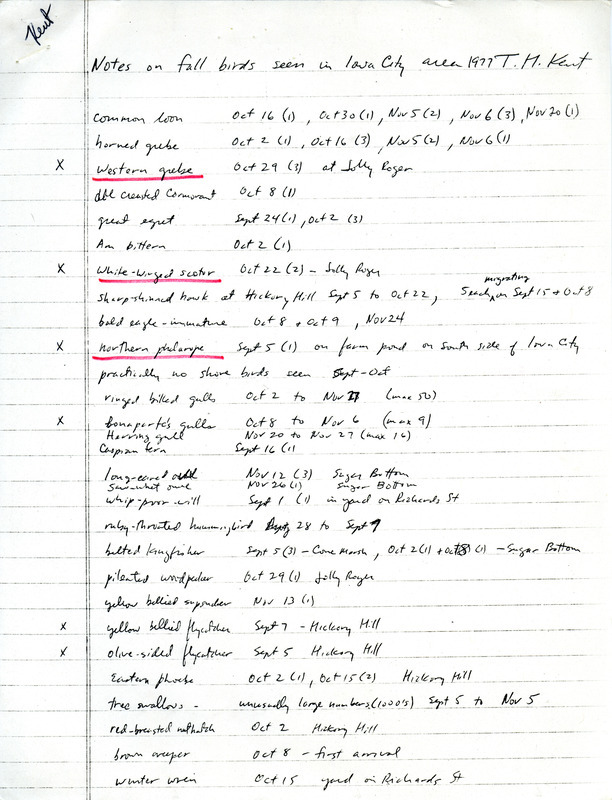 Kent
Notes on fall birds seen in Iowa City area 1977 T. H. Kent
common loon Oct 16 (1), Oct 30 (1), Nov 5 (2), Nov 6 (3), Nov 20 (1)
horned grebe Oct 2 (1), Oct 16 (3), Nov 5 (2), Nov 6 (1)
X Western grebe Oct 29 (3) at Jolly Roger
dbl crested Cormorant Oct 8 (1)
great egret Sept 24 (1), Oct 2 (3)
Am bittern Oct 2 (1)
X White-winged scoter Oct 22 (2) - Jolly Roger
sharp-shinned hawk at Hickory Hill Sept 5 to Oct 22, 5 each migrating on Sept 15 + Oct 8
bald eagle - immature Oct 8 + Oct 9, Nov 24
X northern phalarope Sept 5 (1) on farm pond on south side of Iowa City
practically no shore birds seen Sept-Oct
ringed billed gulls Oct 2 to Nov 27 (max 50)
X bonaparte's gulls Oct 8 to Nov 6 (max 9)
Herring gull Nov 20 to Nov 27 (max 16)
Caspian tern Sept 16 (1)
long-eared owl Nov 12 (3) Sugar Bottom
Saw-whet owl Nov 26 (1) Sugar Bottom
whip-poor-will Sept 1 (1) in yard on Richards St
ruby-throated hummingbird 28 to Sept 9
belted kingfisher Sept 5 (3) - Cone Marsh, Oct 2 (1) + Oct 8 (1) - Sugar Bottom
pileated woodpecker Oct 29 (1) Jolly Roger
yellow bellied sapsucker Nov 13 (1)
X yellow bellied flycatcher Sept 7 - Hickory Hill
X olive-sided flycatcher Sept 5 Hickory Hill
Eastern phoebe Oct 2 (1), Oct 15 (2) Hickory Hill
tree swallows - unusually large numbers (1000's) Sept 5 to Nov 5
red-breasted nuthatch Oct 2 Hickory Hill
brown creeper Oct 8 - first arrival
winter wren Oct 15 yard on Richards St